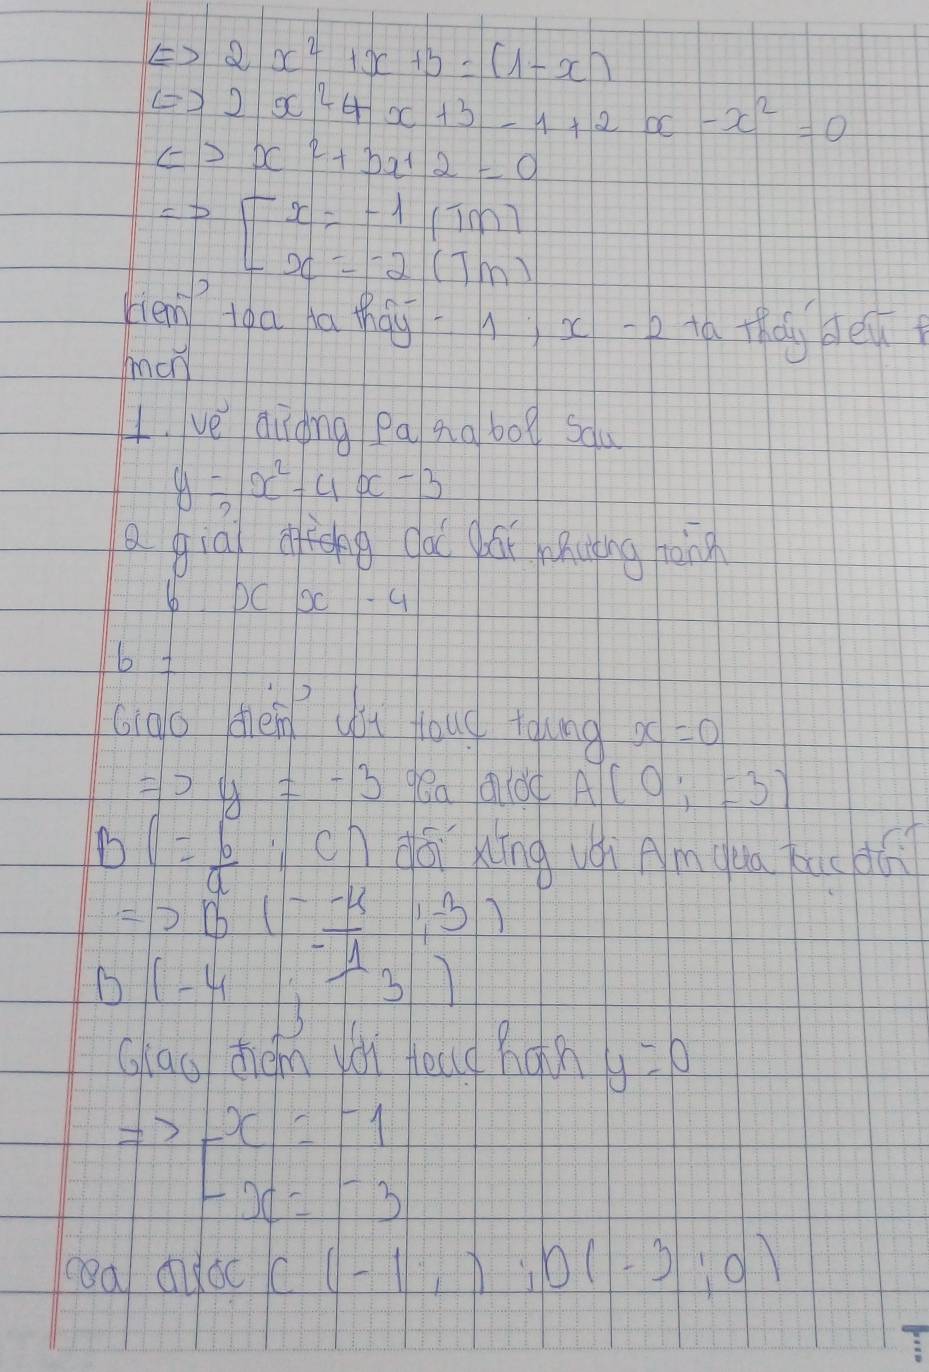 <=> 2x² + x + 3 = (1 - x)
<=> 2x² 4x + 3 - 1 + 2x - x² = 0
<=> x² + 3x + 2 = 0
=> [ x = -1 (Tm)
x = -2 (Tm)
kiểm tra ta thấy - 1 ; x - 2 ta thấy đều
mãn
1. vẽ đường Parabol sau
y = x² - 4x - 3
2 giải các bất phương trình
6 x x - 4
b =
Giao điểm với trục tung x = 0
=> y = -3 ta được A(0 ; -3)
B(-b/a ; c) đối xứng với A qua trục đối
=> B(- -4/-1 ; -3)
B(-4 ; -3)
Giao điểm với trục hoành y = 0
=> [ x = -1
x = -3
ta được C(-1 ; ) ; D(-3 ; 0)